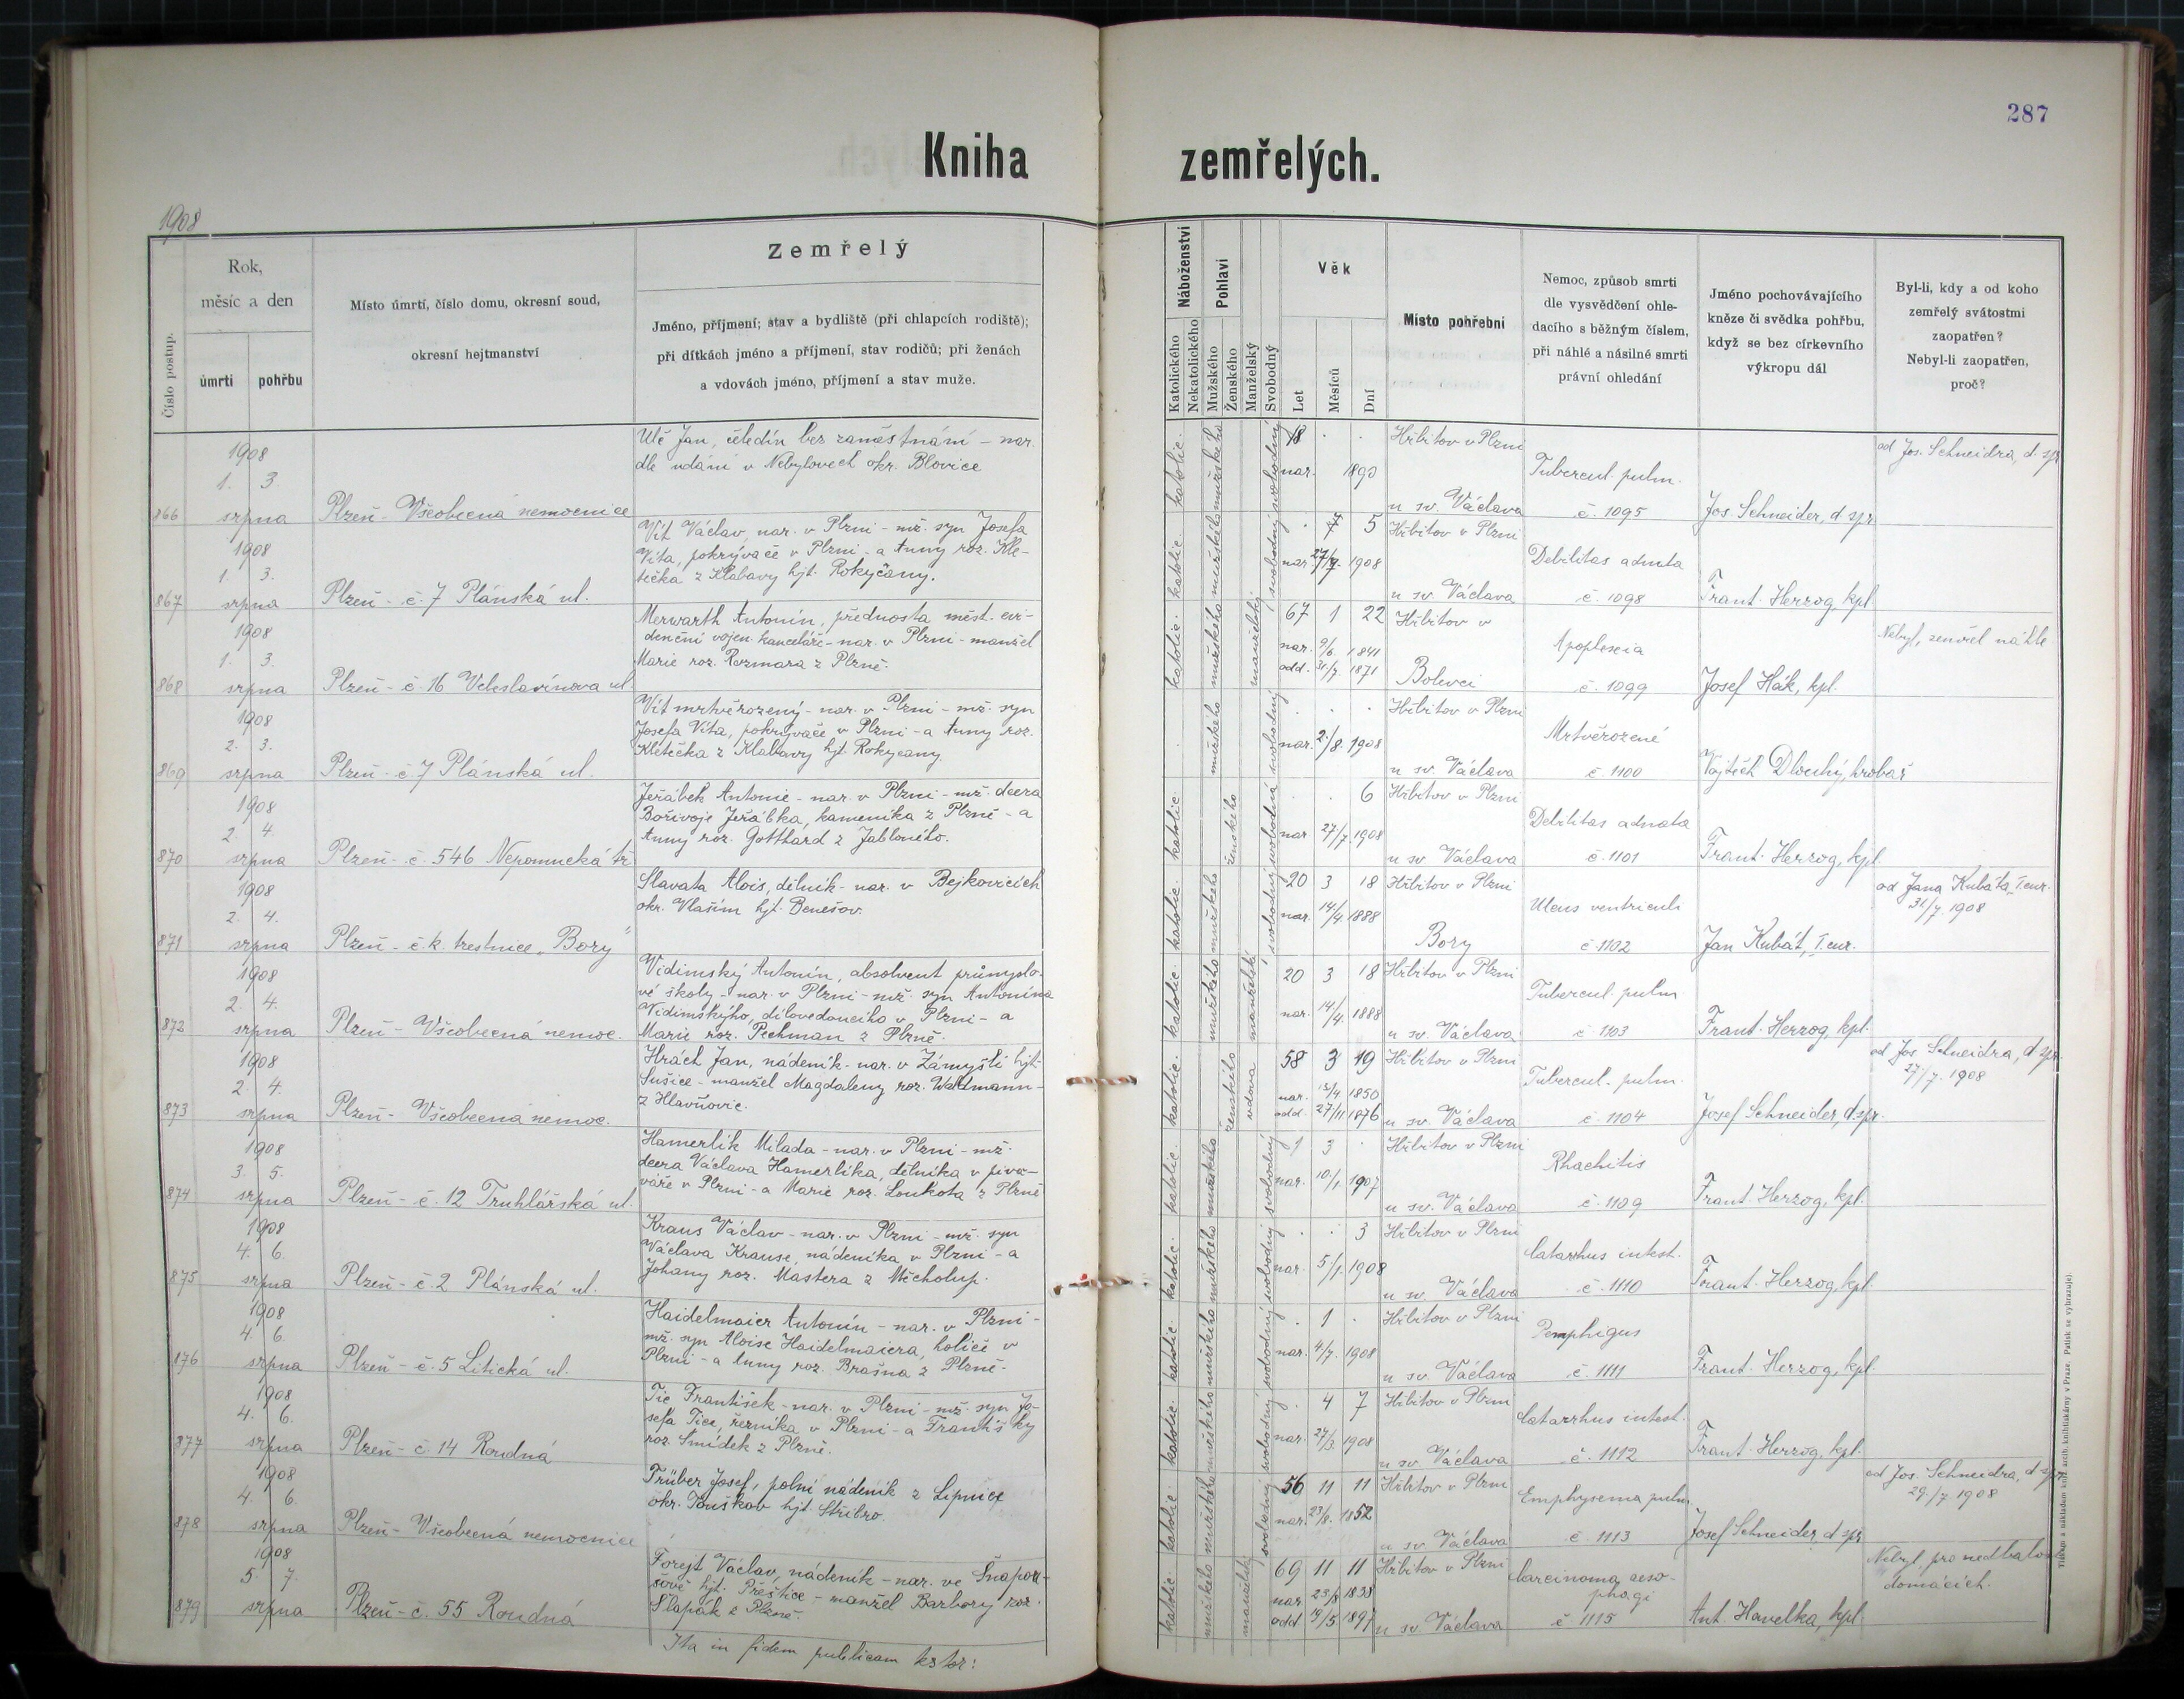 287
Kniha zemřelých.
1908
Číslo postup.
Rok,
měsíc a den
úmrtí
pohřbu
Místo úmrtí, číslo domu, okresní soud,
okresní hejtmanství
Zemřelý
Jméno, příjmení; stav a bydliště (při chlapcích rodiště);
při dítkách jméno a příjmení, stav rodičů; při ženách
a vdovách jméno, příjmení a stav muže.
Náboženství
Katolického
Nekatolického
Pohlaví
Mužského
Ženského
Manželský
Svobodný
Věk
Let
Měsíců
Dní
Místo pohřební
Nemoc, způsob smrti
dle vysvědčení ohle-
dacího s běžným číslem,
při náhlé a násilné smrti
právní ohledání
Jméno pochovávajícího
kněze či svědka pohřbu,
když se bez církevního
výkropu dál
Byl-li, kdy a od koho
zemřelý svátostmi
zaopatřen?
Nebyl-li zaopatřen,
proč?
866
1908
1. 3.
srpna
Plzeň - Všeobecná nemocnice
Ulč Jan, čeledín bez zaměstnání - nar.
dle udání v Nebylovech okr. Blovice
katolic. mužského svobodný
18 . .
nar. 1890
Hřbitov v Plzni
u sv. Václava
Tubercul. pulm.
č. 1095
Jos. Schneider, d. spr.
od Jos. Schneidra, d. spr.
867
1908
1. 3.
srpna
Plzeň - č. 7 Plánská ul.
Vít Václav, nar. v Plzni - mž. syn Josefa
Víta, pokrývače v Plzni - a Anny roz. Kle-
tečka z Klabavy hjt. Rokyčany.
katolic. mužského svobodný
5
nar. 27/7. 1908
Hřbitov v Plzni
u sv. Václava
Debilitas adnata
č. 1098
Frant. Herzog, kpl.
868
1908
1. 3.
srpna
Plzeň - č. 16 Veleslavínova ul.
Merwarth Antonín, přednosta měst. evi-
denční vojen. kanceláře - nar. v Plzni - manžel
Marie roz. Rozmara z Plzně.
katolic. mužského manželský
67 1 22
nar. 9/6. 1841
odd. 31/7. 1871
Hřbitov v
Bolevci
Apoplexia
č. 1099
Josef Hák, kpl.
Nebyl, zemřel náhle
869
1908
2. 3.
srpna
Plzeň - č. 7 Plánská ul.
Vít mrtvěrozený - nar. v Plzni - mž. syn
Josefa Víta, pokrývače v Plzni - a Anny roz.
Kletečka z Klabavy hjt. Rokycany.
mužského svobodný
. . .
nar. 2/8. 1908
Hřbitov v Plzni
u sv. Václava
Mrtvěrozené
č. 1100
Vojtěch Dlouhý, hrobař
870
1908
2. 4.
srpna
Plzeň - č. 546 Nepomucká tř.
Jeřábek Antonie - nar. v Plzni - mž. dcera
Bořivoje Jeřábka, kameníka z Plzně - a
Anny roz. Gotthard z Jabloního.
katolic. ženského svobodná
. . 6
nar. 27/7. 1908
Hřbitov v Plzni
u sv. Václava
Debilitas adnata
č. 1101
Frant. Herzog, kpl.
871
1908
2. 4.
srpna
Plzeň - c. k. trestnice „Bory"
Slavata Alois, dělník - nar. v Bejkovicích
okr. Vlaším hjt. Benešov.
katolic. mužského svobodný
20 3 18
nar. 14/4. 1888
Hřbitov v Plzni
Bory
Ulcus ventriculi
č. 1102
Jan Kubát, t. cur.
od Jana Kubáta, t. cur.
31/7. 1908
872
1908
2. 4.
srpna
Plzeň - Všeobecná nemoc.
Vidimský Antonín, absolvent průmyslo-
vé školy - nar. v Plzni - mž. syn Antonína
Vidimského, dílovedoucího v Plzni - a
Marie roz. Pechman z Plzně.
katolic. mužského manželské
20 3 18
nar. 14/4. 1888
Hřbitov v Plzni
u sv. Václava
Tubercul. pulm.
č. 1103
Frant. Herzog, kpl.
873
1908
2. 4.
srpna
Plzeň - Všeobecná nemoc.
Hrách Jan, nádeník - nar. v Zámyšli hjt.
Sušice - manžel Magdaleny roz. Waldmann -
z Hlavňovic.
katolic. ženského vdova
58 3 19
nar. 12/4 1850
odd. 27/11 1876
Hřbitov v Plzni
u sv. Václava
Tubercul. pulm.
č. 1104
Josef Schneider, d. spr.
od Jos. Schneidra, d. spr.
27/7. 1908
874
1908
3. 5.
srpna
Plzeň - č. 12 Truhlářská ul.
Hamerlík Milada - nar. v Plzni - mž.
dcera Václava Hamerlíka, dělníka v pivo-
váře v Plzni - a Marie roz. Loukota z Plzně
katolic. mužského svobodný
1 3 .
nar. 10/1. 1907
Hřbitov v Plzni
u sv. Václava
Rhachitis
č. 1109
Frant. Herzog, kpl.
875
1908
4. 6.
srpna
Plzeň - č. 2 Plánská ul.
Kraus Václav - nar. v Plzni - mž. syn
Václava Krause, nádeníka v Plzni - a
Johany roz. Mastera z Měcholup.
katolic. mužského svobodný
. . 3
nar. 5/1. 1908
Hřbitov v Plzni
u sv. Václava
Catarrhus intest.
č. 1110
Frant. Herzog, kpl.
876
1908
4. 6.
srpna
Plzeň - č. 5 Litická ul.
Haidelmaier Antonín - nar. v Plzni -
mž. syn Aloise Haidelmaiera, holiče v
Plzni - a Anny roz. Brašna z Plzně.
katolic. mužského svobodný
. 1 .
nar. 4/7. 1908
Hřbitov v Plzni
u sv. Václava
Pemphigus
č. 1111
Frant. Herzog, kpl.
877
1908
4. 6.
srpna
Plzeň - č. 14 Roudná
Tic František - nar. v Plzni - mž. syn Jo-
sefa Tice, řezníka v Plzni - a Františky
roz. Šmídek z Plzně.
katolic. mužského svobodný
. 4 7
nar. 27/3. 1908
Hřbitov v Plzni
u sv. Václava
Catarrhus intest.
č. 1112
Frant. Herzog, kpl.
878
1908
4. 6.
srpna
Plzeň - Všeobecná nemocnice
Trüber Josef, polní nádeník z Lipnice
okr. Touškov hjt. Stříbro.
katolic. mužského svobodný
56 11 11
nar. 23/8. 1852
Hřbitov v Plzni
u sv. Václava
Emphysema pulm.
č. 1113
Josef Schneider, d. spr.
od Jos. Schneidra, d. spr.
29./7 1908
879
1908
5. 7.
srpna
Plzeň - č. 55 Roudná
Forejt Václav, nádeník - nar. ve Šnapou-
šově hjt. Přeštice - manžel Barbory roz.
Slapák z Plzně.
katolic. mužského manželský
69 11 11
nar. 23/8 1838
odd. 19/5 1897
Hřbitov v Plzni
u sv. Václava
Carcinoma aeso-
phagi
č. 1115
Ant. Havelka, kpl.
Nebyl, pro nedbalost
domácích.
Ita in fidem publicam testor:
Tiskem a nákladem kníž. arcib. knihtiskárny v Praze. Patisk se vyhrazuje.